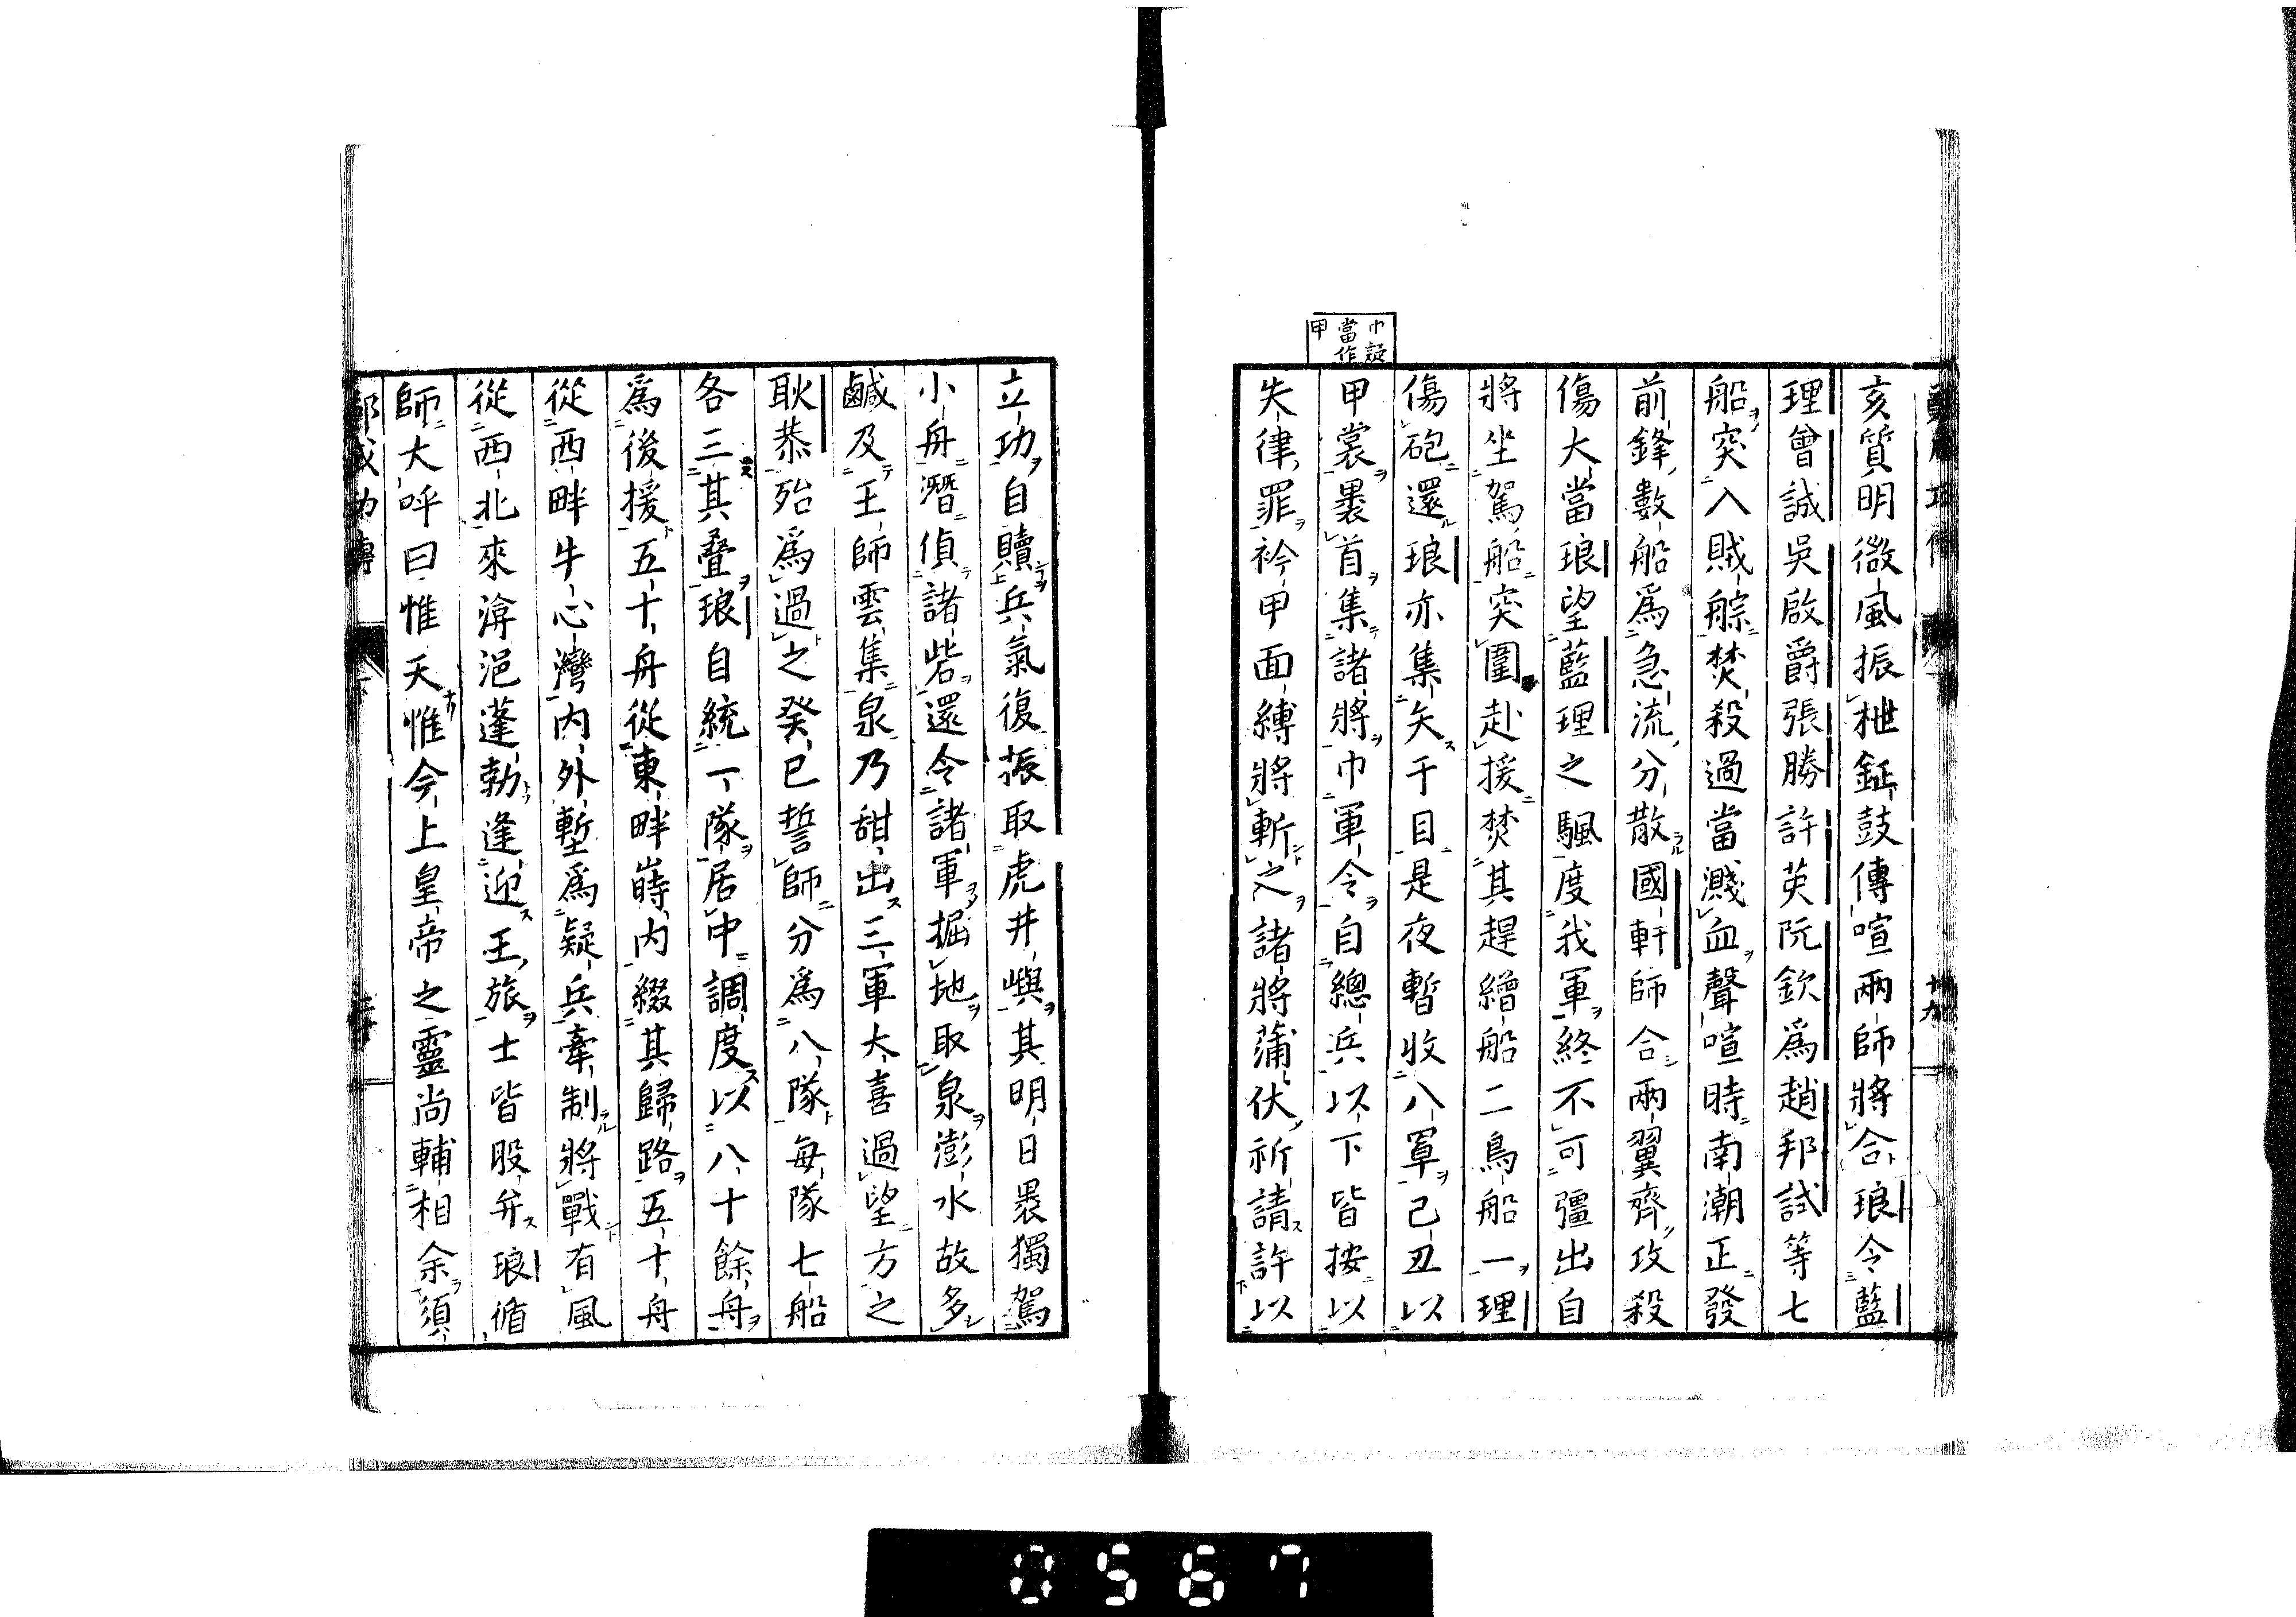 巾疑
當作
甲
亥質明微風振枻鉦鼓傳喧兩師將合琅令藍
理曾誠吳啟爵張勝許英阮欽爲趙邦試等七
船突入賊䑸焚殺過當濺血聲喧時南潮正發
前鋒數船爲急流分散國軒師合兩翼齊攻殺
傷大當琅望藍理之颿度我軍終不可彊出自
將坐駕船突圍赴援焚其趕繒船二鳥船一理
傷砲還琅亦集矢于目是夜暫收八罩己丑以
甲裳裹首集諸將巾軍令自總兵以下皆按以
失律罪衿甲面縛將斬之諸將蒲伏祈請許以
立功自贖兵氣復振取虎井嶼其明日裹獨駕
小舟潛偵諸砦還令諸軍掘地取泉澎水故多
鹹及王師雲集泉乃甜出三軍大喜過望方之
耿恭殆爲過之癸巳誓師分爲八隊每隊七船
各三其疊琅自統一隊居中調度以八十餘舟
爲後援五十舟從東畔嵵內綴其歸路五十舟
從西畔牛心灣內外塹爲疑兵牽制將戰有風
從西北來渰浥蓬勃逢迎王旅士皆股弁琅循
師大呼曰惟天惟今上皇帝之靈尚輔相余須
鄭成功傳